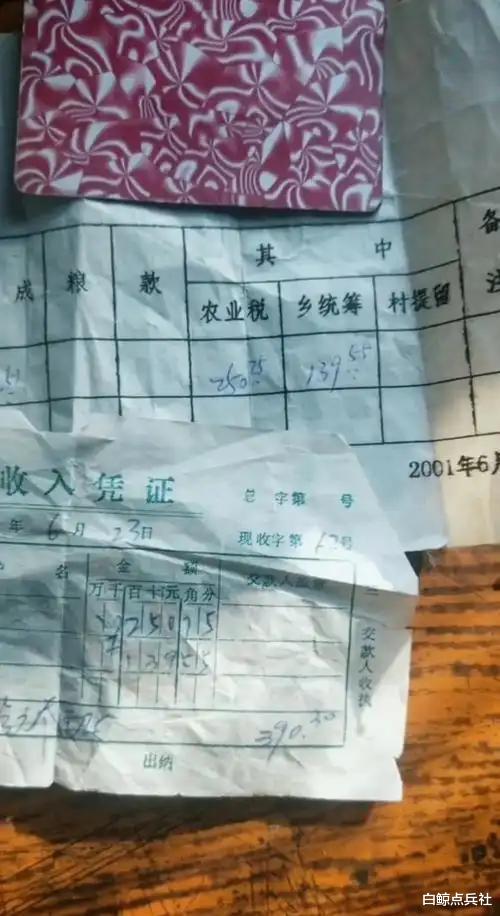 其 中 备
成 粮 款 农业税 乡统筹 村提留 注
250.75 139.55
2001年6月
收入凭证 总字第 号
年 6 月 23日 现收字第 号
名 金 额
万 千 百 十 元 角 分
2 5 0 7 5
1 3 9 5 5
交款人收执
390.30
出纳
白鲸点兵社